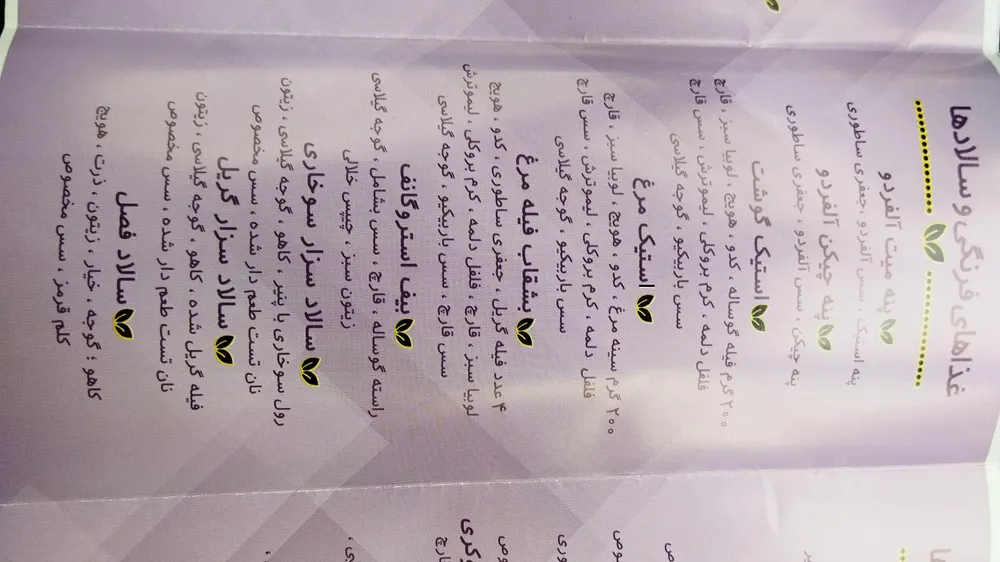 غذاهای فرنگی و سالادها
پنه میت آلفردو
پنه استیک ، سس آلفردو ،جعفری ساطوری
پنه چیکن آلفردو
پنه چیکن ، سس آلفردو ، جعفری ساطوری
استیک گوشت
۲۰۰ گرم فیله گوساله ، کدو ، هویج ، لوبیا سبز ، قارچ
فلفل دلمه ، کرم بروکلی ، لیموترش ، سس قارچ
سس باربیکیو ، گوجه گیلاسی
استیک مرغ
۲۰۰ گرم سینه مرغ ، کدو ، هویج ، لوبیا سبز ، قارچ
فلفل دلمه ، کرم بروکلی ، لیموترش ، سس قارچ
سس باربیکیو ، گوجه گیلاسی
بشقاب فیله مرغ
۴ عدد فیله گریل ، جعفری ساطوری ، کدو ، هویج
لوبیا سبز ، قارچ ، فلفل دلمه ، کرم بروکلی ، لیموترش
سس قارچ ، سس باربیکیو ، گوجه گیلاسی
بیف استروگانف
راسته گوساله ، قارچ ، سس بشامل ، گوجه گیلاسی
زیتون سبز ، چیپس خلالی
سالاد سزار سوخاری
رول سوخاری با پنیر ، کاهو ، گوجه گیلاسی ، زیتون
نان تست طعم دار شده ، سس مخصوص
سالاد سزار گریل
فیله گریل شده ، کاهو ، گوجه گیلاسی ، زیتون
نان تست طعم دار شده ، سس مخصوص
سالاد فصل
کاهو ؛ گوجه ، خیار ، زیتون ، ذرت ، هویج
کلم قرمز ، سس مخصوص